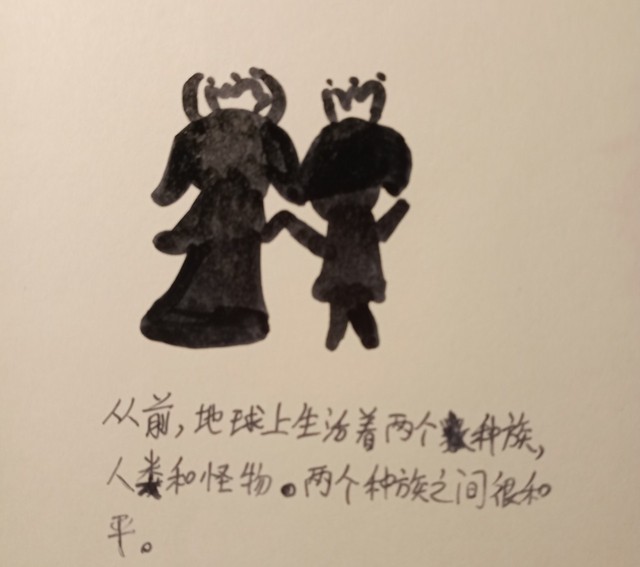 从前,地球上生活着两个种族,
人类和怪物。两个种族之间很和
平。